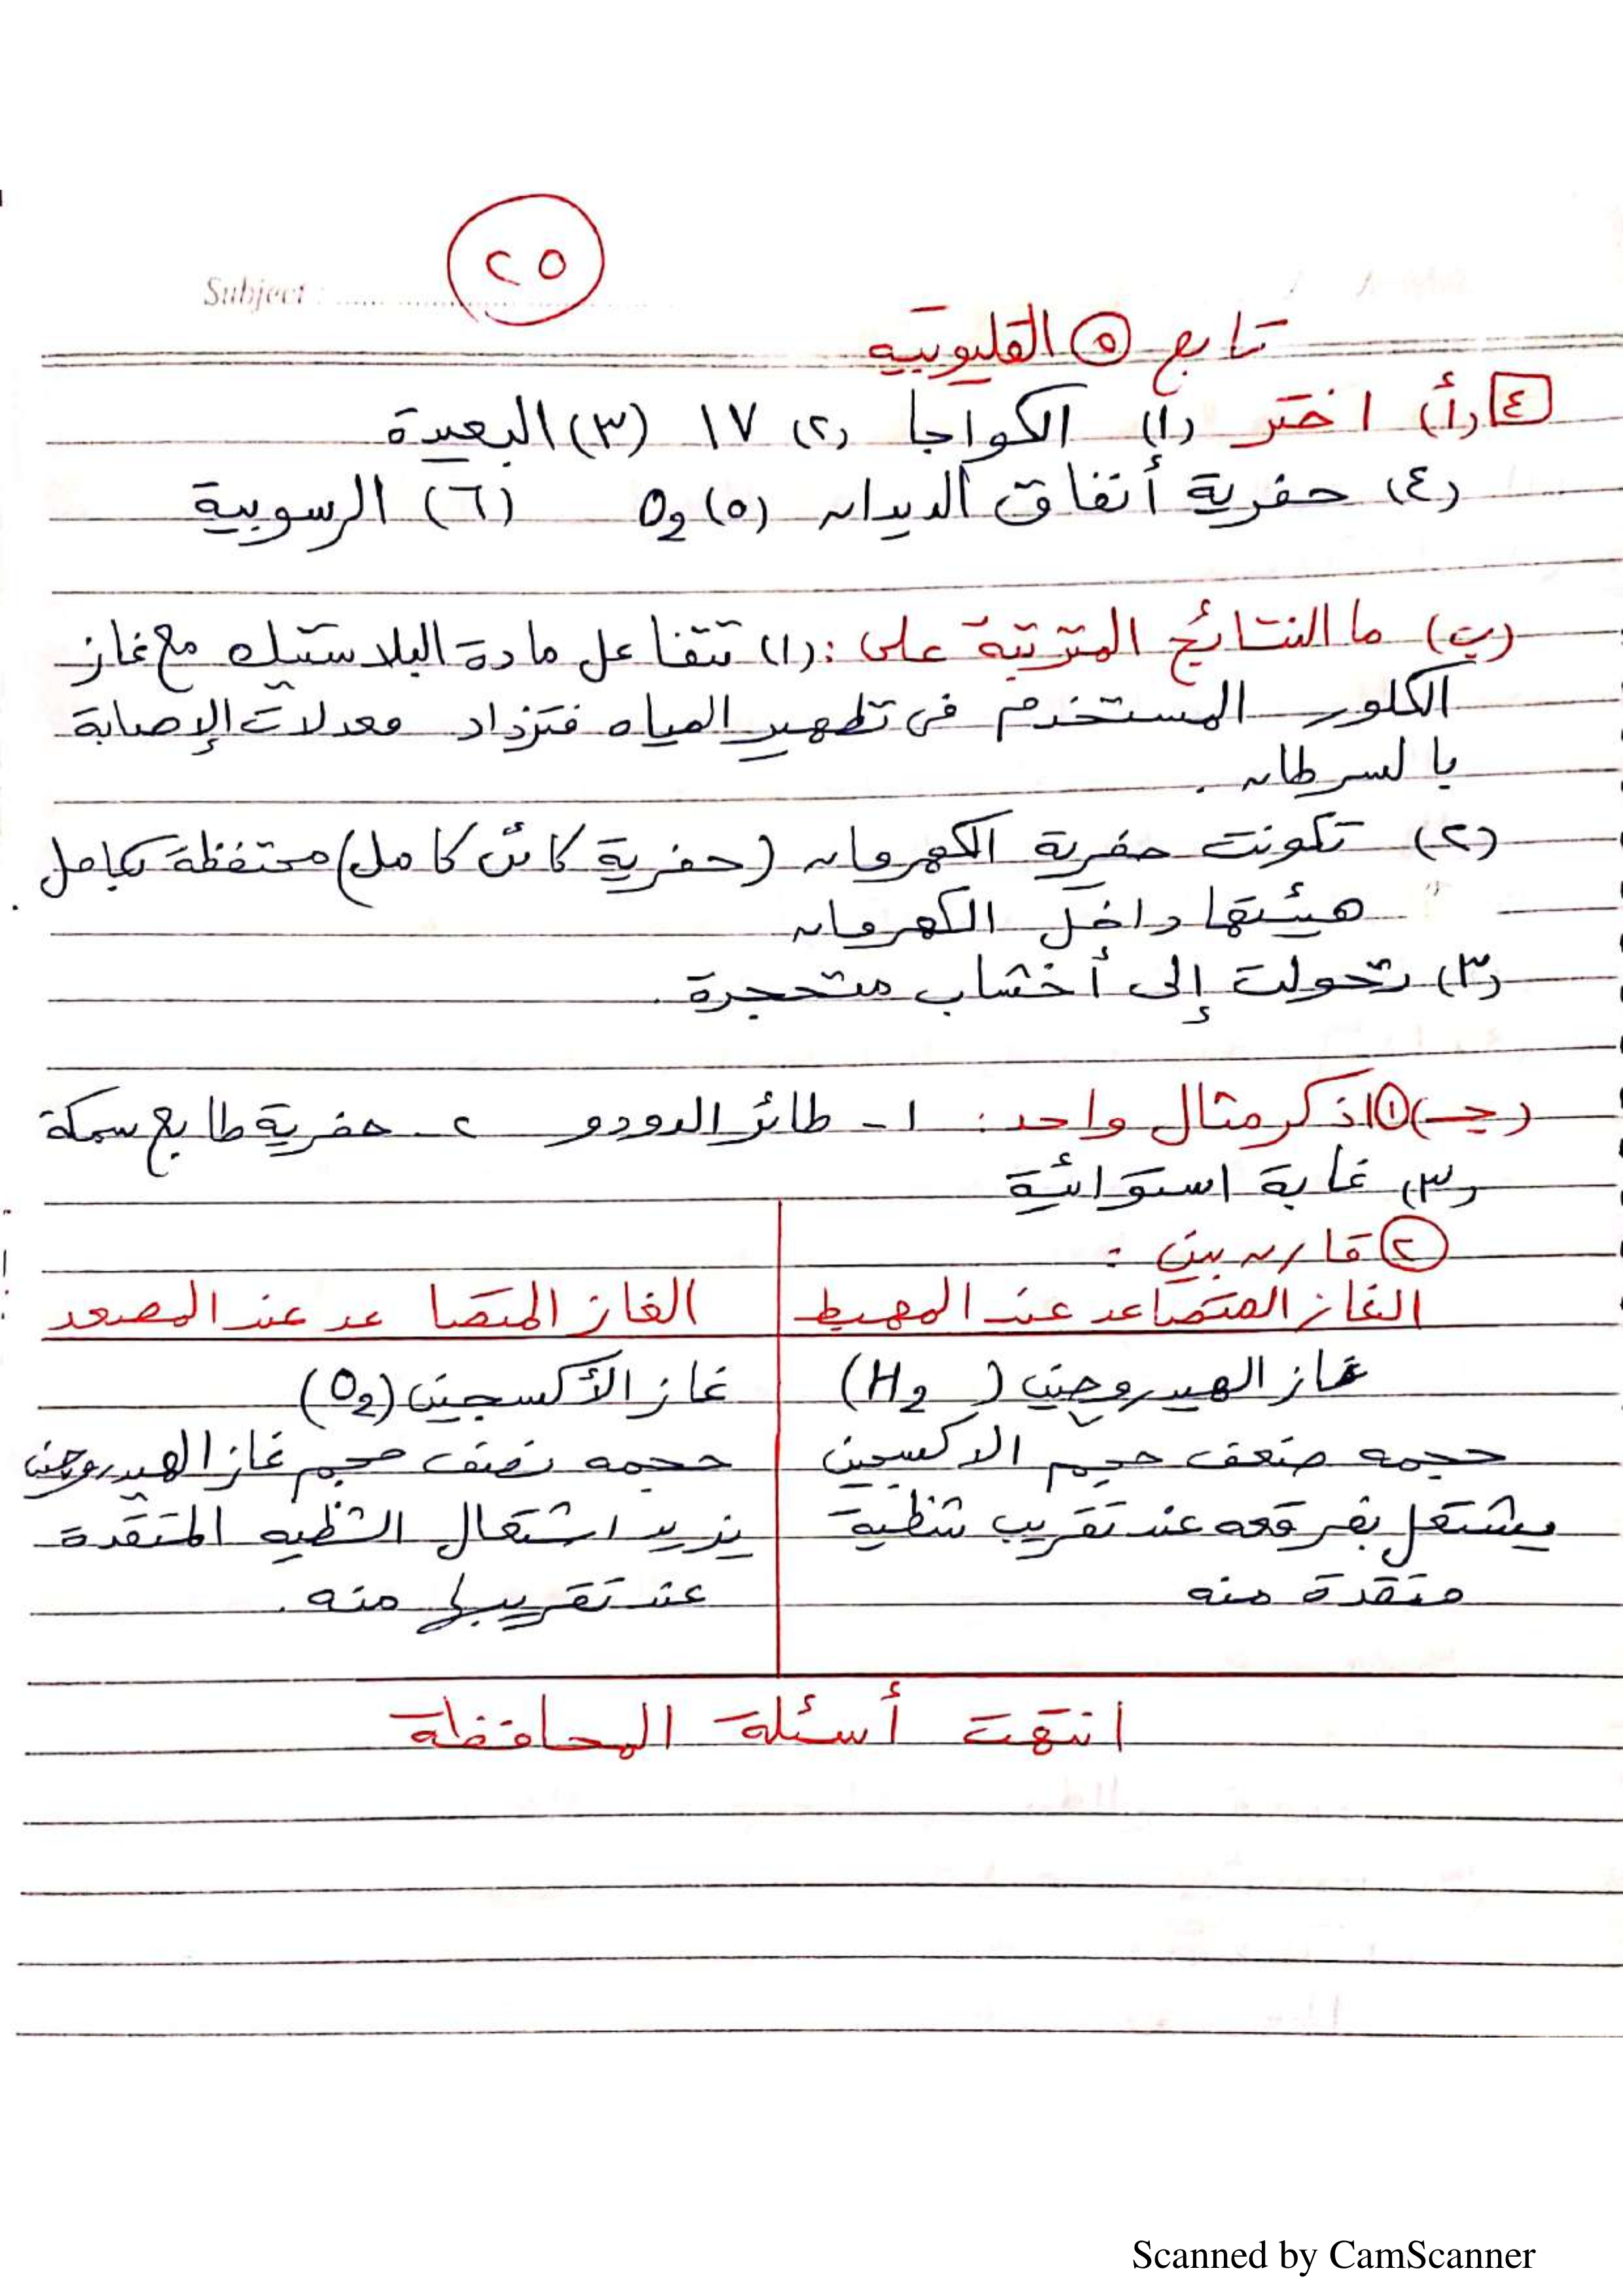 ٢٥
Subject : ........................
تابع ٥ القليوبية
٤ (أ) اختر (١) الكواجا (٢) ١٧ (٣) البعيدة
(٤) حفرية أنفاق الديدان (٥) O2 (٦) الرسوبية
(ب) ما النتائج المترتبة على : (١) تتفاعل مادة البلاستيك مع غاز
الكلور المستخدم فى تطهير المياه فتزداد معدلات الإصابة
بالسرطان .
(٢) تكونت حفرية الكهرمان (حفرية كائن كامل) محتفظة بكامل
هيئتها داخل الكهرمان
(٣) تحولت إلى أخشاب متحجرة .
(جـ) ١ اذكر مثال واحد : ١ - طائر الدودو ٢ - حفرية طابع سمكة
(٣) غابة استوائية
٢ قارن بين :
الغاز المتصاعد عند المهبط | الغاز المتصاعد عند المصعد
غاز الهيدروجين (H2) | غاز الأكسجين (O2)
حجمه ضعف حجم الاكسجين | حجمه نصف حجم غاز الهيدروجين
يشتعل بفرقعه عند تقريب شظية | يزيد اشتعال الشظيه المتقدة
متقدة منه | عند تقريبها منه .
انتهت أسئلة المحافظة
Scanned by CamScanner